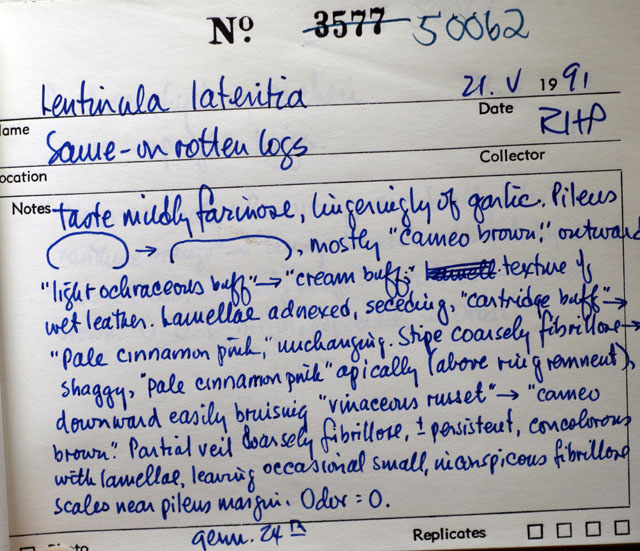 Nº 3577 50062
Lentinula lateritia 21. V 1991
ame Date
Same - on rotten logs RHP
ocation Collector
Notes taste mildly farinose, lingeringly of garlic. Pileus
→ , mostly "cameo brown," outward
"light ochraceous buff" → "cream buff;" texture of
wet leather. Lamellae adnexed, seceding, "cartridge buff" →
"pale cinnamon pink," unchanging. Stipe coarsely fibrillose →
shaggy, "pale cinnamon pink" apically (above ring remnent),
downward easily bruising "vinaceous russet" → "cameo
brown." Partial veil coarsely fibrillose, ± persistent, concolorous
with lamellae, leaving occasional small, inconspicous fibrillose
scales near pileus margin. Odor = 0.
germ. 24 Replicates